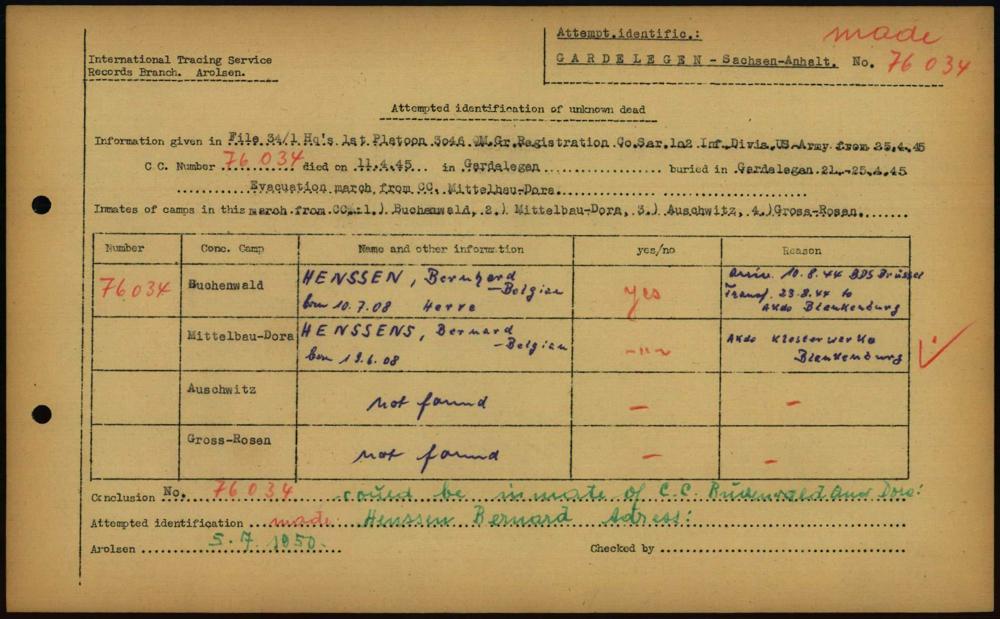 Attempt.identific.: made
International Tracing Service
Records Branch. Arolsen.
GARDELEGEN - Sachsen-Anhalt. No. 76034
Attempted identification of unknown dead
Information given in File 34/1 Hq's 1st Platoon 3046 QM.Gr.Registration Co.Sar.1o2 Inf.Divis.US-Army from 25.4.45
CC. Number 76034 died on 11.4.45 in Gardelegen buried in Gardelegen 21.-25.4.45
Evacuation march from CC. Mittelbau-Dora.
Inmates of camps in this march from CC.: 1.) Buchenwald, 2.) Mittelbau-Dora, 3.) Auschwitz, 4.)Gross-Rosen.
Number Conc. Camp Name and other information yes/no Reason
76034 Buchenwald HENSSEN, Bernhard - Belgian born 10.7.08 Herve yes arriv. 10.8.44 BDS Brüssel Transf. 23.8.44 to AKdo Blankenburg
Mittelbau-Dora HENSSENS, Bernard - Belgian born 19.6.08 -"- AKdo Klosterwerke Blankenburg
Auschwitz not found - -
Gross-Rosen not found - -
Conclusion No. 76034 could be inmate of C.C. Buchenwald and Dora:
Attempted identification made Henssen Bernard Adress:
Arolsen 5.7.1950. Checked by